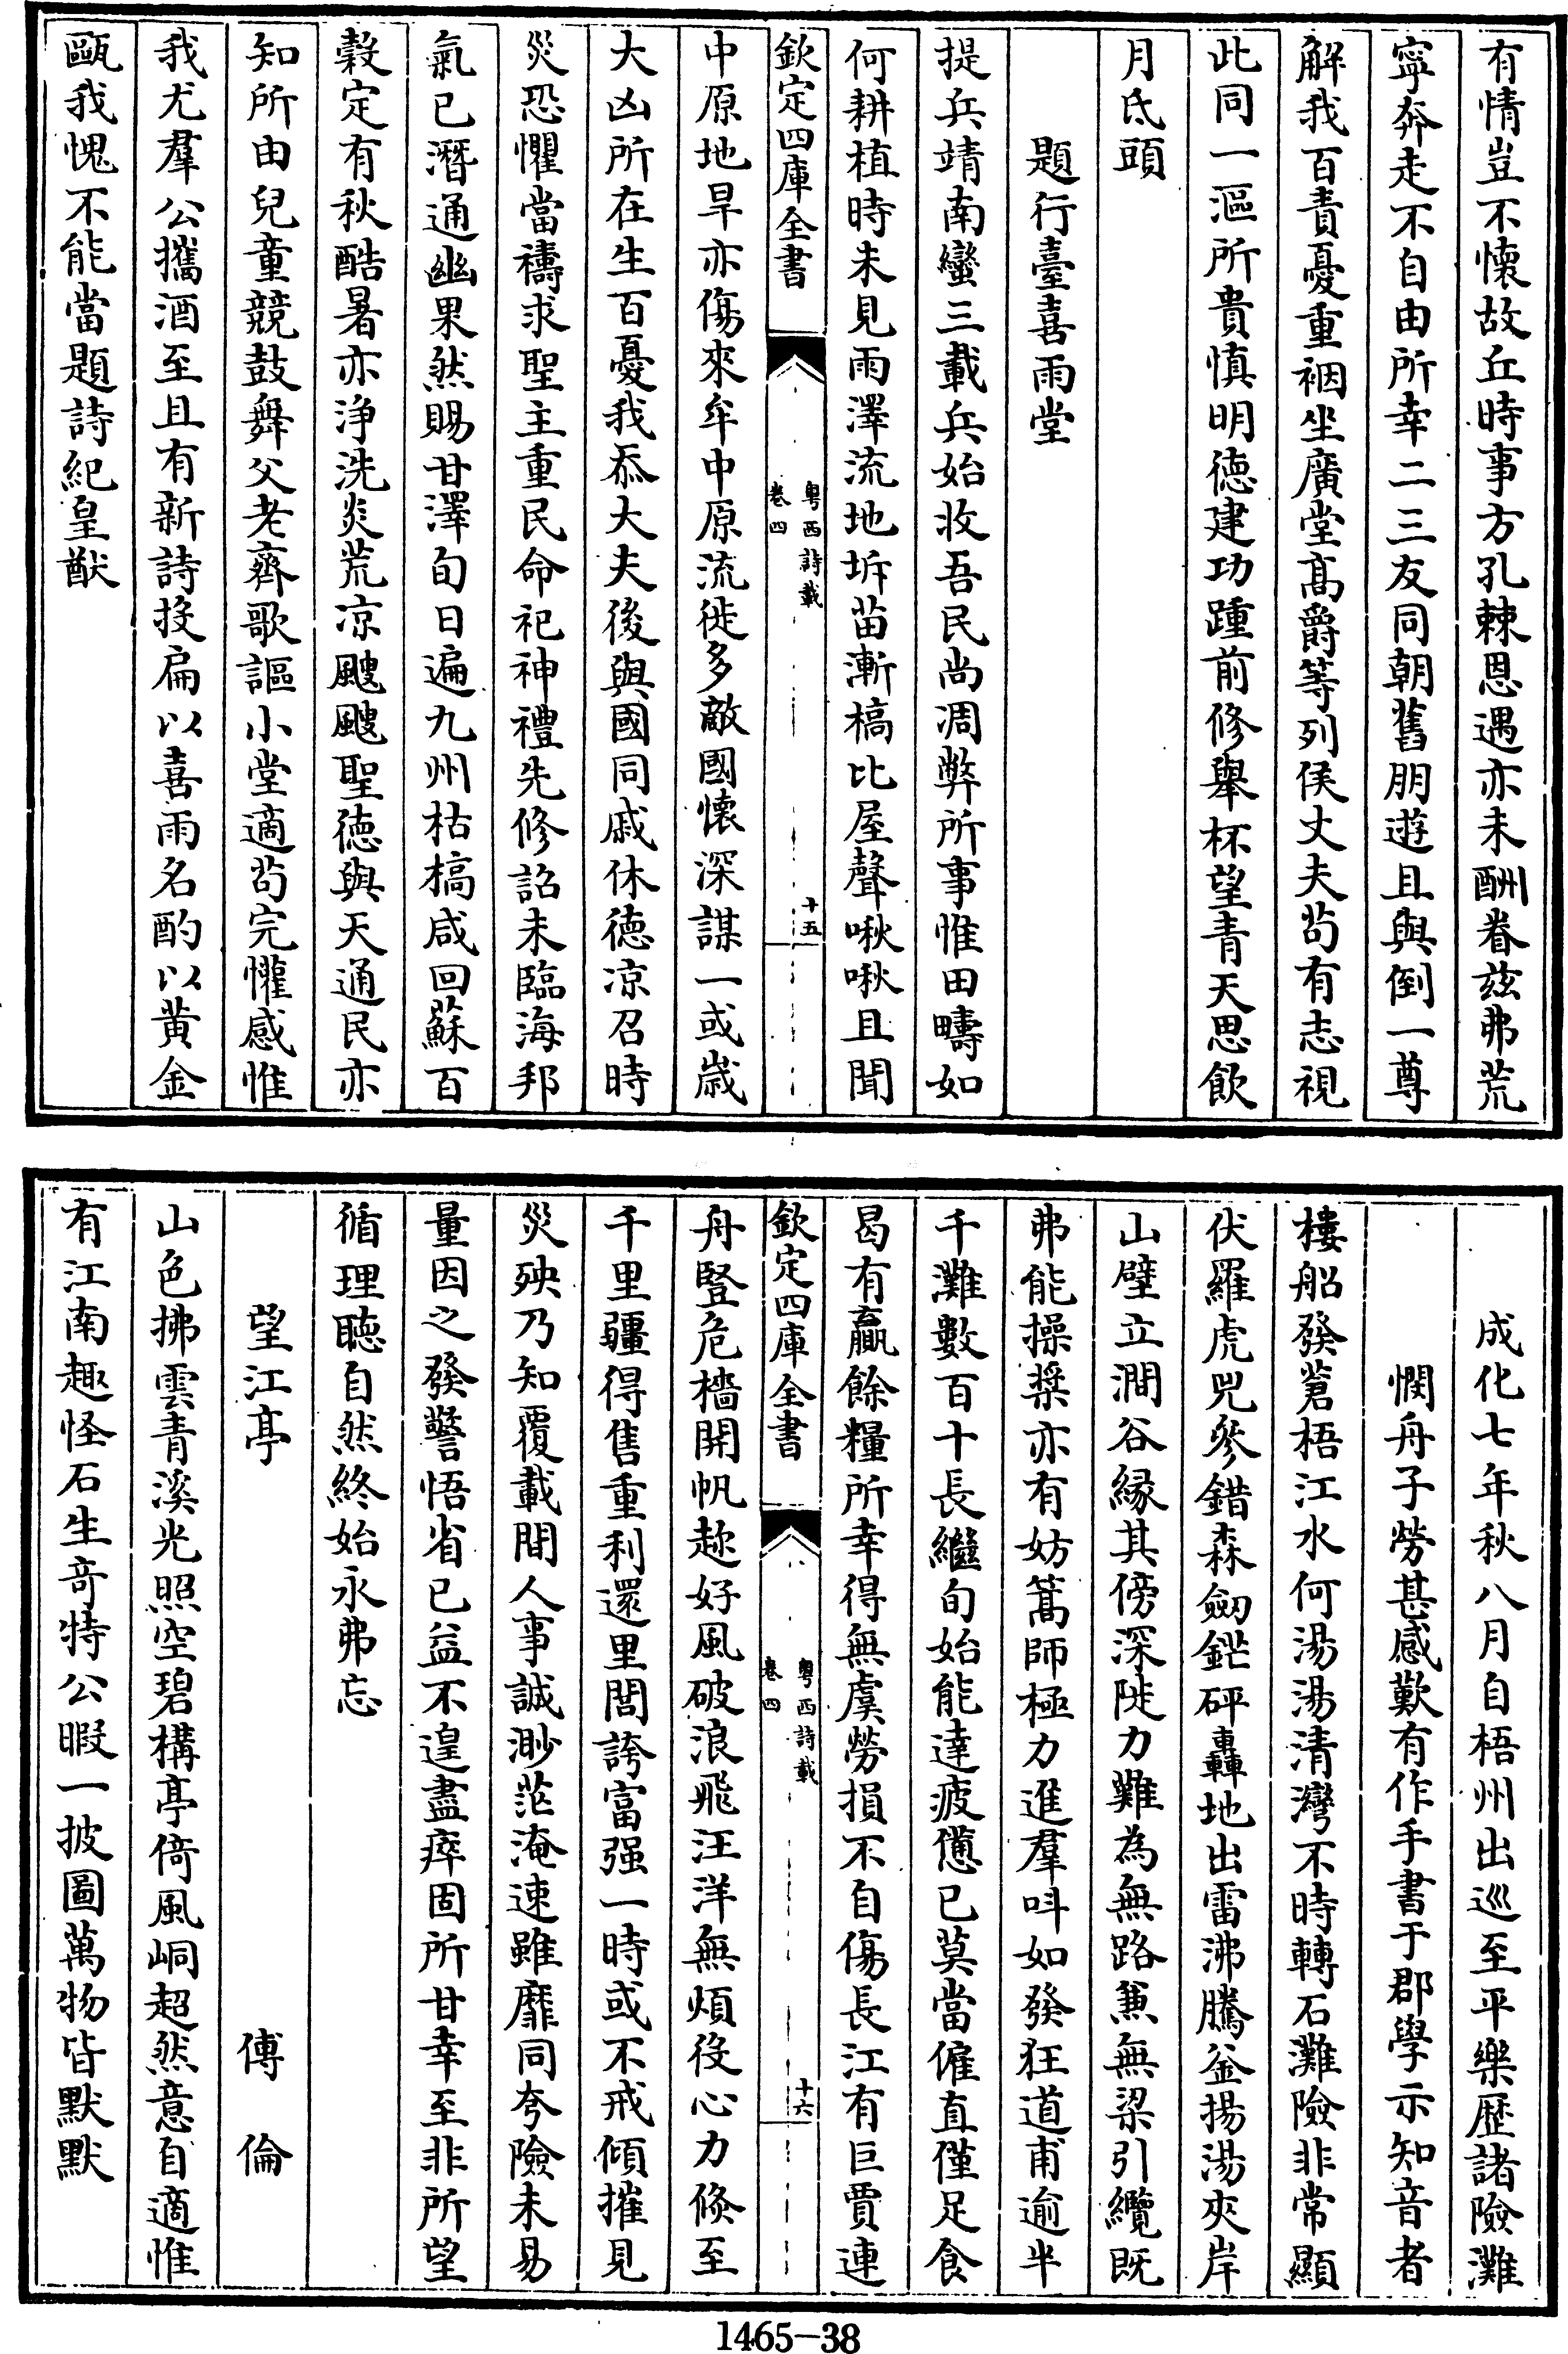 有情豈不懷故丘時事方孔棘恩遇亦未酬眷茲弗荒
寧奔走不自由所幸二三友同朝舊朋遊且與倒一尊
解我百責憂重裀坐廣堂髙爵等列侯丈夫茍有志視
此同一漚所貴慎明徳建功踵前修舉杯望青天思飲
月氐頭
題行臺喜雨堂
提兵靖南蠻三載兵始收吾民尚凋弊所事惟田疇如
何耕植時未見雨澤流地坼苗漸槁比屋聲啾啾且聞
欽定四庫全書
粤西詩載
卷四
十五
中原地旱亦傷來牟中原流徙多敵國懷深謀一或歳
大凶所在生百憂我忝大夫後與國同戚休徳凉召時
災恐懼當禱求聖主重民命祀神禮先修詔未臨海邦
氣已潛通幽果然賜甘澤旬日遍九州枯槁咸回蘇百
穀定有秋酷暑亦浄洗炎荒凉颼颼聖徳與天通民亦
知所由兒童競鼓舞父老齊歌謳小堂適茍完懽感惟
我尤羣公攜酒至且有新詩投扁以喜雨名酌以黄金
甌我愧不能當題詩紀皇猷
成化七年秋八月自梧州出巡至平樂歴諸險灘
憫舟子勞甚感歎有作手書于郡學示知音者
樓船發蒼梧江水何湯湯清灣不時轉石灘險非常顯
伏羅虎兕參錯森劒鋩砰轟地出雷沸騰釡揚湯夾岸
山壁立澗谷縁其傍深陡力難為無路兼無梁引纜既
弗能操槳亦有妨篙師極力進羣呌如發狂道甫逾半
千灘數百十長繼旬始能達疲憊已莫當僱直僅足食
曷有贏餘糧所幸得無虞勞損不自傷長江有巨賈連
欽定四庫全書
粤西詩載
卷四
十六
舟豎危檣開帆趂好風破浪飛汪洋無煩役心力倐至
千里疆得售重利還里閭誇富强一時或不戒傾摧見
災殃乃知覆載間人事誠渺茫淹速雖靡同夸險未易
量因之發警悟省已益不遑盡瘁固所甘幸至非所望
循理聴自然終始永弗忘
望江亭　傅倫
山色拂雲青溪光照空碧構亭倚風峒超然意自適惟
有江南趣怪石生竒特公暇一披圖萬物皆默默
1465-38